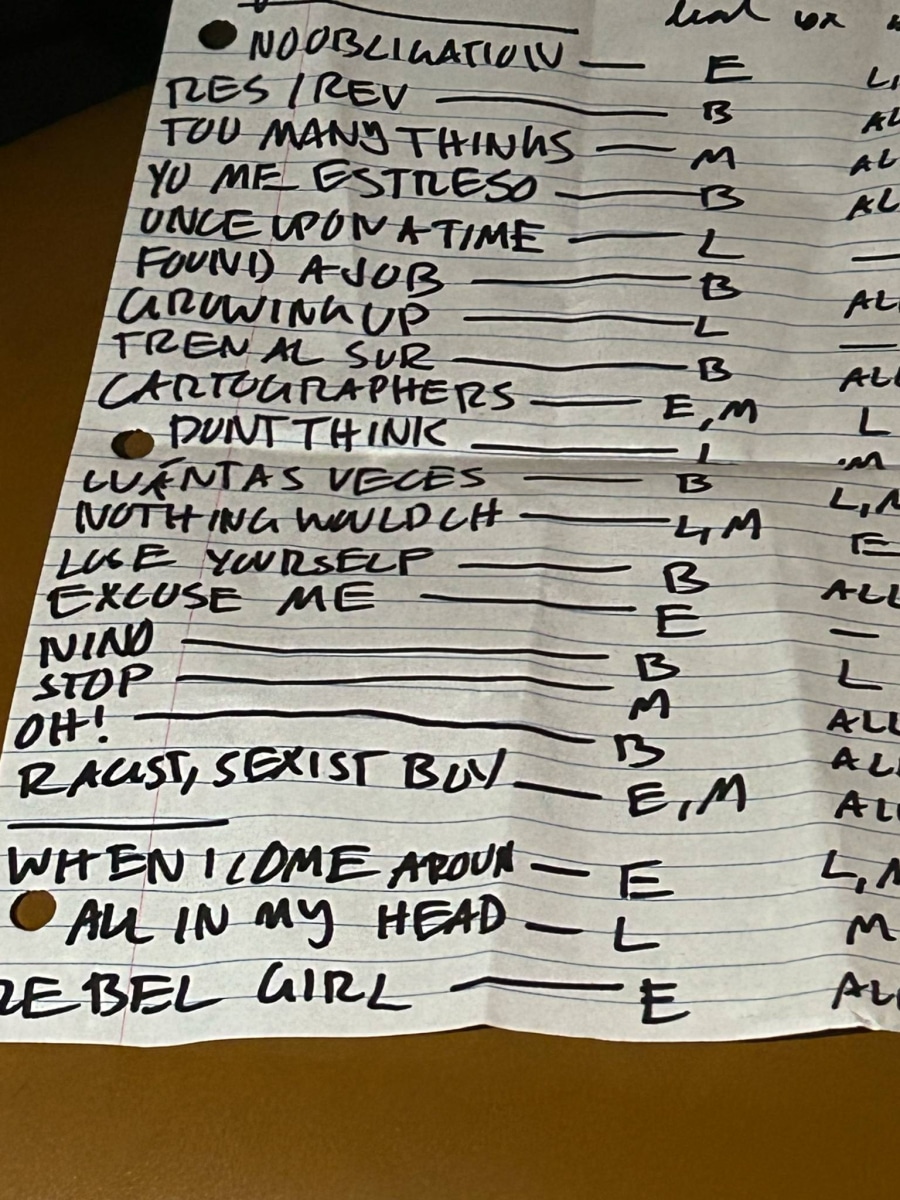 lead vox
NO OBLIGATION — E LI
RES / REV — B AL
TOO MANY THINGS — M AL
YO ME ESTRESO — B AL
ONCE UPON A TIME — L —
FOUND A JOB — B ALL
GROWING UP — L —
TREN AL SUR — B ALL
CARTOGRAPHERS — E, M L
DONT THINK — L M
CUÁNTAS VECES — B L, M
NOTHING WOULD CH — L, M E
LOSE YOURSELF — B ALL
EXCUSE ME — E —
NINO — B L
STOP — M ALL
OH! — B ALL
RACIST, SEXIST BOY — E, M ALL
WHEN I COME AROUN — E L, M
ALL IN MY HEAD — L M
REBEL GIRL — E ALL